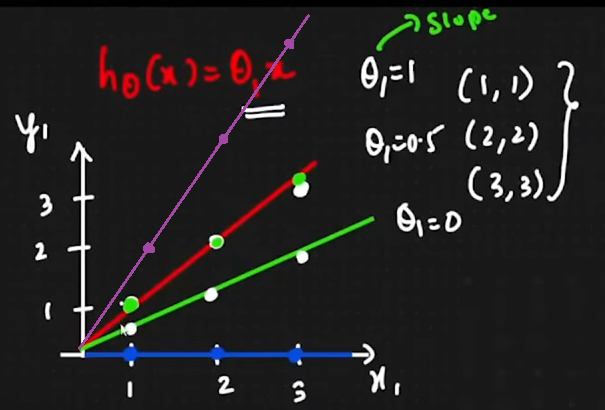 slope
hθ(x) = θ₁x
θ₁=1 (1,1)
θ₁=0.5 (2,2)
(3,3)
θ₁=0
y₁
3
2
1
1 2 3 x₁